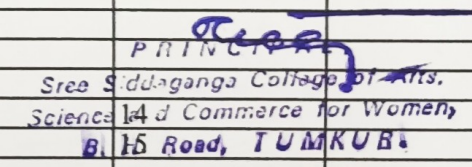 PRINCIPAL
Sree Siddaganga College of Arts,
Science 14 d Commerce for Women,
B. 15 Road, TUMKUR.